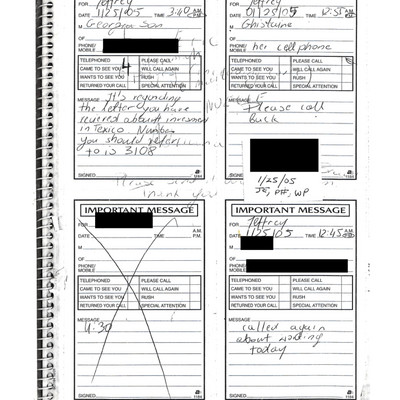 Jeffrey
DATE 1/25/05 TIME 3:40 A.M. P.M.
M Georgia Son
OF
PHONE/
MOBILE
TELEPHONED 4 PLEASE CALL
CAME TO SEE YOU WILL CALL AGAIN
WANTS TO SEE YOU RUSH
RETURNED YOUR CALL SPECIAL ATTENTION
MESSAGE It's regarding
the letter you have
about
in Texico. Number
you should refer
to is 3108
SIGNED
1184
Jeffrey
DATE 01/25/05 TIME 12:35
M Ghislaine
OF
PHONE/
MOBILE her cell phone
TELEPHONED PLEASE CALL
CAME TO SEE YOU WILL CALL AGAIN
WANTS TO SEE YOU RUSH
RETURNED YOUR CALL SPECIAL ATTENTION
MESSAGE
Please call
back
1/25/05
JE, PH, WP
SIGNED
1184
thank you
IMPORTANT MESSAGE
FOR
DATE TIME A.M. P.M.
M
OF
PHONE/
MOBILE
TELEPHONED PLEASE CALL
CAME TO SEE YOU WILL CALL AGAIN
WANTS TO SEE YOU RUSH
RETURNED YOUR CALL SPECIAL ATTENTION
MESSAGE
4:30
SIGNED
1184
IMPORTANT MESSAGE
FOR Jeffrey
DATE 1/25/05 TIME 12:45
M
OF
PHONE/
MOBILE
TELEPHONED PLEASE CALL
CAME TO SEE YOU WILL CALL AGAIN
WANTS TO SEE YOU RUSH
RETURNED YOUR CALL SPECIAL ATTENTION
MESSAGE
called again
about working
today
SIGNED
1184